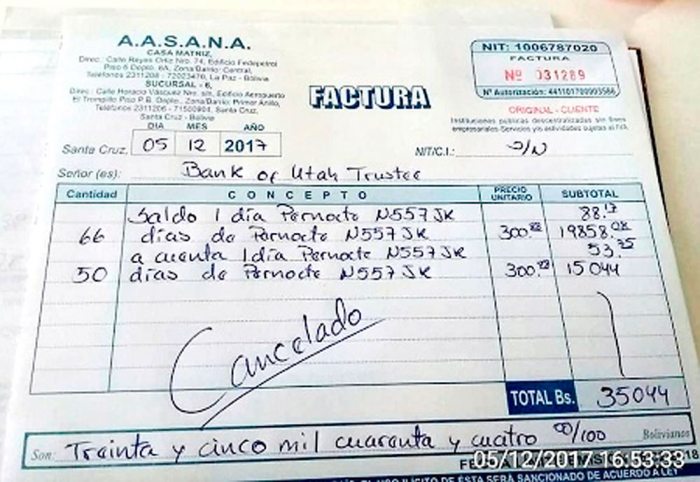 A.A.S.A.N.A.
CASA MATRIZ,
Direc.: Calle Reyes Ortiz Nro. 74, Edificio Fedepetrol
Piso 6 Depto. 6A, Zona/Barrio: Central,
Teléfonos 2311208 - 72023470, La Paz - Bolivia
SUCURSAL - 6,
Direc.: Calle Horacio Vásquez Nro. s/n, Edificio Aeropuerto
El Trompillo Piso P.B. Depto., Zona/Barrio: Primer Anillo,
Teléfonos 2311206 - 71500904, Santa Cruz -
Santa Cruz - Bolivia
FACTURA
NIT: 1006787020
FACTURA
Nº 031289
Nº Autorización: 441101700003566
ORIGINAL - CLIENTE
Instituciones públicas descentralizadas sin fines
empresariales-Servicios y/o actividades sujetas al IVA
DIA MES AÑO
Santa Cruz, 05 12 2017
NIT/C.I.: S/N
Señor (es): Bank of Utah Trustee
Cantidad CONCEPTO PRECIO UNITARIO SUBTOTAL
Saldo 1 día Pernocte N557JK 88.17
66 días de Pernocte N557JK 300.88 19858.08
a cuenta 1 día Pernocte N557JK 53.75
50 días de Pernocte N557JK 300.88 15044
Cancelado
TOTAL Bs. 35044
Son: Treinta y cinco mil cuarenta y cuatro 00/100 Bolivianos
05/12/2017 16:53:33
ILICITO DE ESTA SERÁ SANCIONADO DE ACUERDO A LEY